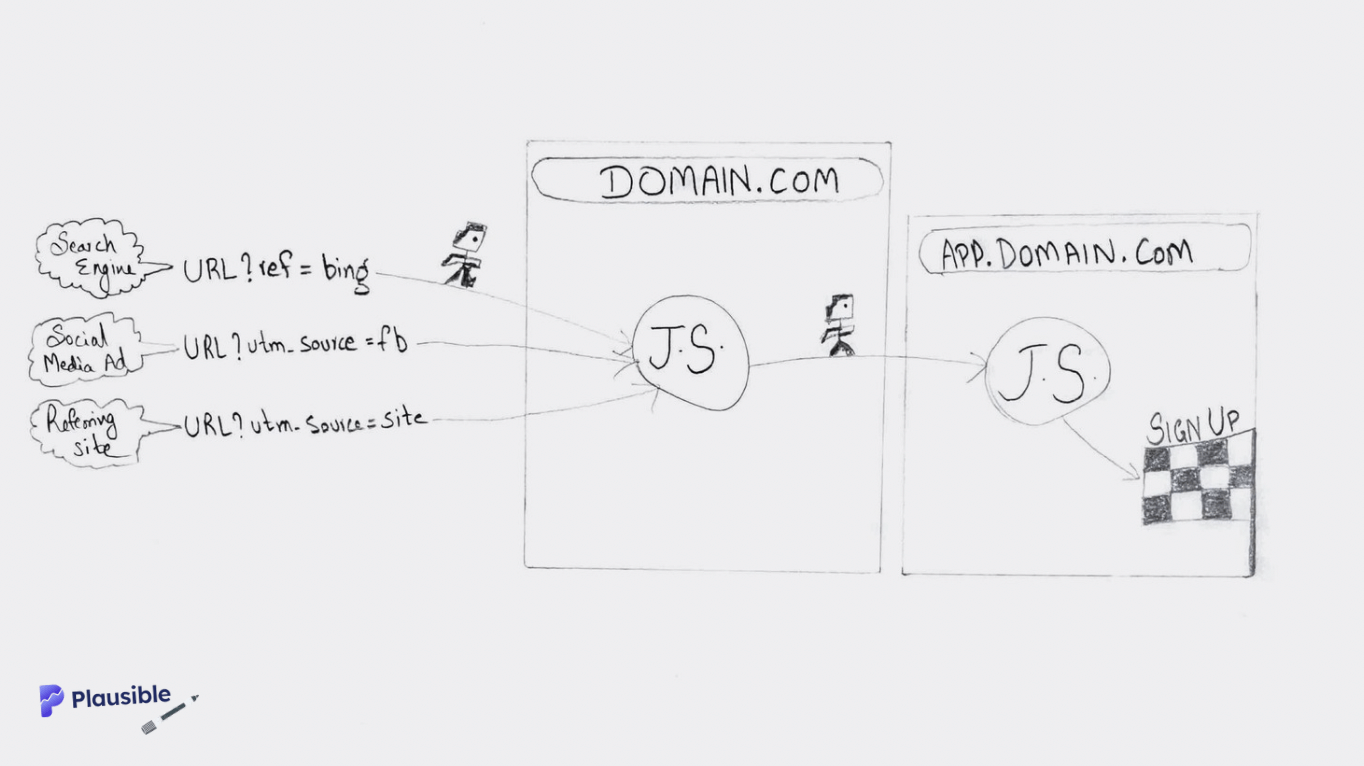 Search
Engine
URL?ref = bing
Social
Media Ad
URL?utm_source =fb
Referring
site
URL?utm_source=site
DOMAIN.COM
J.S.
APP.DOMAIN.COM
J.S.
SIGN UP
Plausible